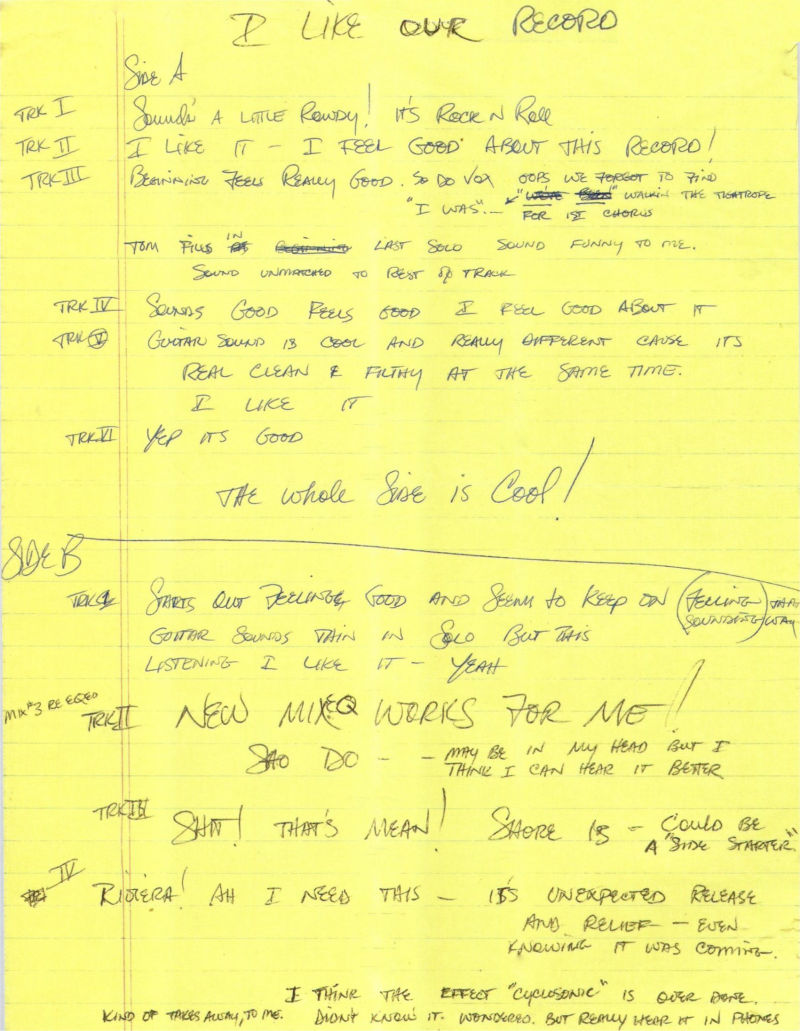 I LIKE OUR RECORD
SIDE A
TRK I SOUNDS A LITTLE ROWDY! IT'S ROCK N ROLL
TRK II I LIKE IT - I FEEL GOOD ABOUT THIS RECORD!
TRK III BEGINNING FEELS REALLY GOOD. SO DO VOX OOPS WE FORGOT TO FIND
"I WAS" - "WE'VE BEEN" WALKIN THE TIGHTROPE
FOR 1ST CHORUS
TOM FILLS IN LAST SOLO SOUND FUNNY TO ME.
SOUND UNMATCHED TO REST OF TRACK
TRK IV SOUNDS GOOD FEELS GOOD I FEEL GOOD ABOUT IT
TRK V GUITAR SOUND IS COOL AND REALLY DIFFERENT CAUSE ITS
REAL CLEAN & FILTHY AT THE SAME TIME.
I LIKE IT
TRK VI YEP ITS GOOD
THE WHOLE SIDE IS COOL!
SIDE B
TRK 1 STARTS OUT FEELING GOOD AND SEEMS TO KEEP ON FEELING THAT
SOUNDING WAY
GUITAR SOUNDS THIN IN SOLO BUT THIS
LISTENING I LIKE IT - YEAH
MIX #3 RE EQED
TRK II NEW MIX EQ WORKS FOR ME!
SHO DO - - MAY BE IN MY HEAD BUT I
THINK I CAN HEAR IT BETTER
TRK III SHIT! THAT'S MEAN! SHORE IS - COULD BE
A "SIDE STARTER"
IV RIVIERA! AH I NEED THIS - IT'S UNEXPECTED RELEASE
AND RELIEF - EVEN
KNOWING IT WAS COMING.
I THINK THE EFFECT "CYCLOSONIC" IS OVER DONE.
KIND OF TAKES AWAY, TO ME. DIDN'T KNOW IT. WONDERED. BUT REALLY HEAR IT IN PHONES